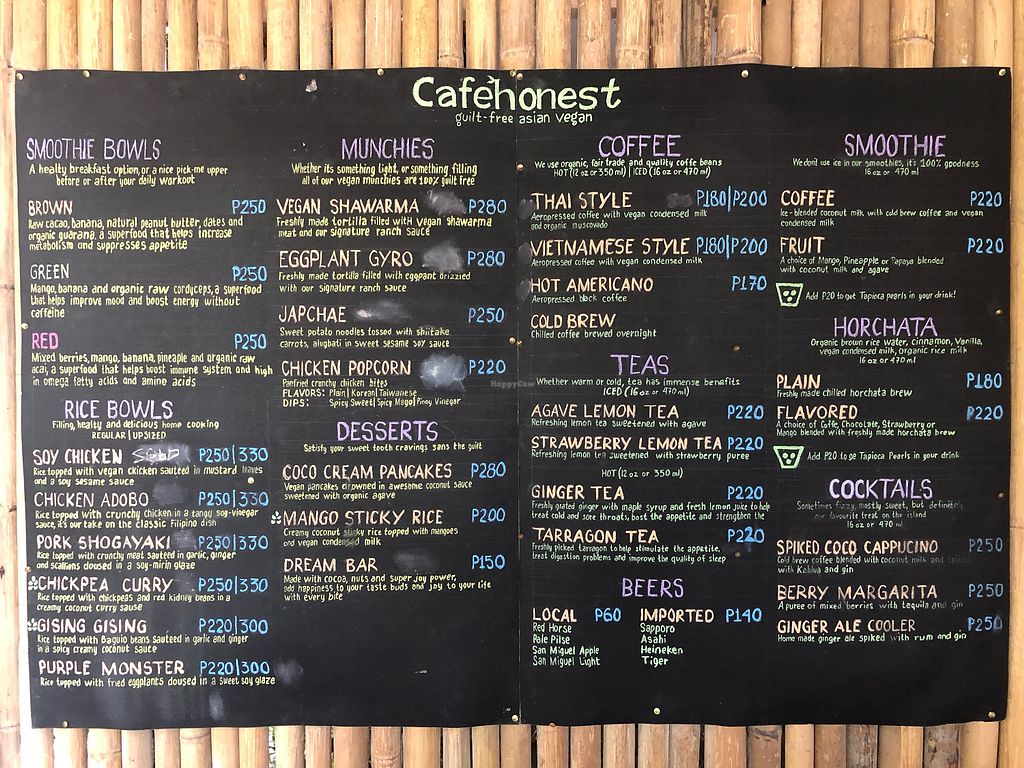 Cafèhonest
guilt-free asian vegan
SMOOTHIE BOWLS
A healty breakfast option, or a nice pick-me upper
before or after your daily workout
BROWN P250
Raw cacao, banana, natural peanut butter, dates and
organic guarana, a superfood that helps increase
metabolism and suppresses appetite
GREEN P250
Mango, banana and organic raw cordyceps, a superfood
that helps improve mood and boost energy without
caffeine
RED P250
Mixed berries, mango, banana, pineapple and organic raw
acai, a superfood that helps boost immune system, and high
in omega fatty acids and amino acids
RICE BOWLS
Filling, healty and delicious home cooking
REGULAR | UPSIZED
SOY CHICKEN P250|330
Rice topped with vegan chicken sauteed in mustard leaves
and a soy sesame sauce
CHICKEN ADOBO P250|330
Rice topped with crunchy chicken in a tangy soy-vinegar
sauce, it's our take on the classic filipino dish
PORK SHOGAYAKI P250|330
Rice topped with crunchy meat sauteed in garlic, ginger
and scallions doused in a soy-mirin glaze
CHICKPEA CURRY P250|330
Rice topped with chickpeas and red kidney beans in a
creamy coconut curry sause
GISING GISING P220|300
Rice topped with Baguio beans sauteed in garlic and ginger
in a spicy creamy coconut sauce
PURPLE MONSTER P220|300
Rice topped with fried eggplants doused in a sweet soy glaze
MUNCHIES
Whether its something light, or something filling
all of our vegan munchies are 100% guilt free
VEGAN SHAWARMA P280
Freshly made tortilla filled with vegan shawarma
meat and our signature ranch sauce
EGGPLANT GYRO P280
Freshly made tortilla filled with eggpant drizzled
with our signature ranch sauce
JAPCHAE P250
Sweet potato noodles tossed with shiitake
carrots, alugbati in sweet sesame soy sauce
CHICKEN POPCORN P220
Panfried crunchy chicken bites
FLAVORS: Plain | Korean | Taiwanese
DIPS: Spicy Sweet | Spicy Mayo | Pinoy Vinegar
HappyCow
DESSERTS
Satisfy your sweet tooth cravings sans the guilt
COCO CREAM PANCAKES P280
Vegan pancakes drowned in awesome coconut sauce
sweetened with organic agave
MANGO STICKY RICE P200
Creamy coconut sticky rice topped with mangoes
and vegan condensed milk
DREAM BAR P150
Made with cocoa, nuts and super joy power,
add happiness to your taste buds and joy to your life
with every bite
COFFEE
We use organic, fair trade and quality coffe beans
HOT (12 oz or 350 ml) | ICED (16 oz or 470 ml)
THAI STYLE P180|P200
Aeropressed coffee with vegan condensed milk
and organic muscovado
VIETNAMESE STYLE P180|P200
Aeropressed coffee with vegan condensed milk
HOT AMERICANO P170
Aeropressed black coffee
COLD BREW
Chilled coffee brewed overnight
TEAS
Whether warm or cold, tea has immense benefits
ICED (16 oz or 470 ml)
AGAVE LEMON TEA P220
Refreshing lemon tea sweetened with agave
STRAWBERRY LEMON TEA P220
Refreshing lemon tea sweetened with strawberry puree
HOT (12 oz or 350 ml)
GINGER TEA P220
Freshly grated ginger with maple syrup and fresh lemon juice to help
treat cold and sore throats, bost the appetite and strengthen the
TARRAGON TEA P220
Freshly picked tarragon to help stimulate the appetite,
treat digestion problems and improve the quality of sleep
BEERS
LOCAL P60 IMPORTED P140
Red Horse Sapporo
Pale Pilse Asahi
San Miguel Apple Heineken
San Miguel Light Tiger
SMOOTHIE
We dont use ice in our smoothies, it's 100% goodness
16 oz or 470 ml
COFFEE P220
Ice-blended coconut milk with cold brew coffee and vegan
condensed milk
FRUIT P220
A choice of Mango, Pineapple or Papaya blended
with coconut milk and agave
Add P20 to get Tapioca pearls in your drink!
HORCHATA
Organic brown rice water, cinnamon, Vanilla,
vegan condensed milk, organic rice milk
16 oz or 470 ml
PLAIN P180
Freshly made chilled horchata brew
FLAVORED P220
A choice of Coffe, Chocolate, Strawberry or
Mango blended with freshly made horchata brew
Add P20 to ge Tapioca pearls in your drink
COCKTAILS
Sometimes fizzy, mostly sweet, but definitely
our favourite treat on the island
16 oz or 470 ml
SPIKED COCO CAPPUCINO P250
Cold brew coffee blended with coconut milk and spiked
with Kahlua and gin
BERRY MARGARITA P250
A puree of mixed berries with tequila and gin
GINGER ALE COOLER P250
Home made ginger ale spiked with rum and gin